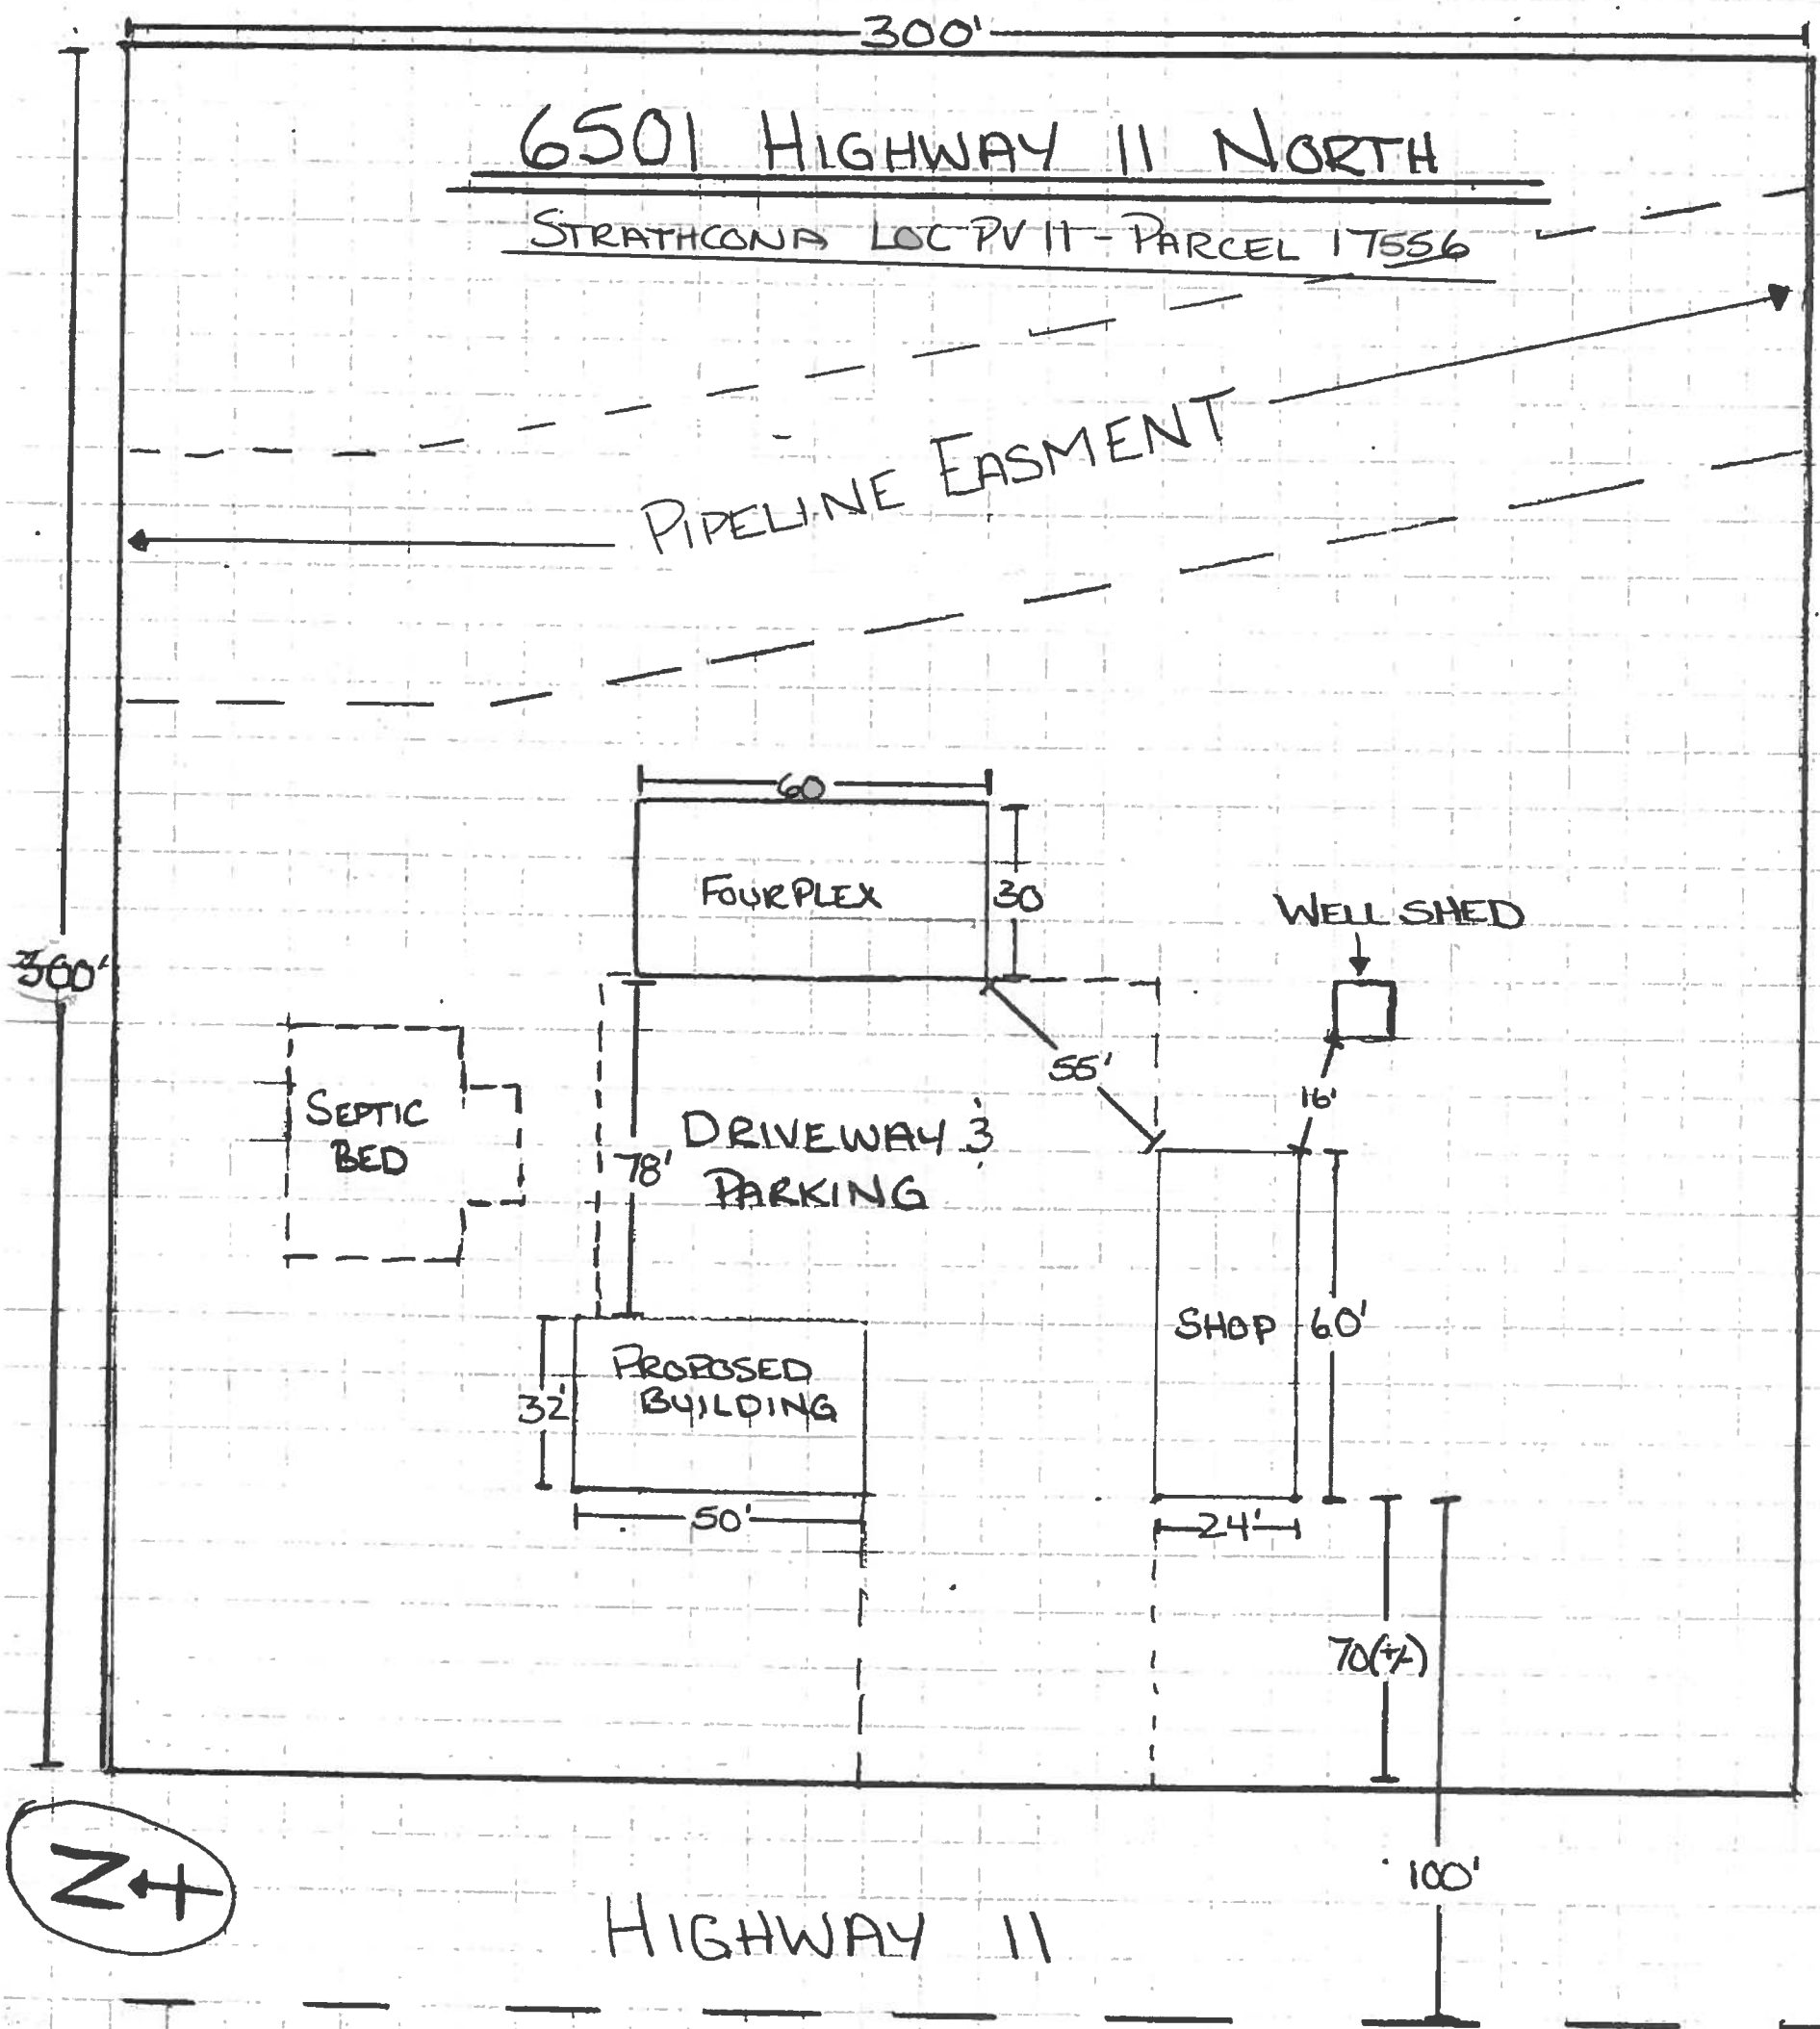 300'
6501 HIGHWAY 11 NORTH
STRATHCONA LOC PV 11 - PARCEL 17556
PIPELINE EASMENT
60
FOURPLEX
30
WELL SHED
300'
55'
16'
SEPTIC
BED
78'
DRIVEWAY &
PARKING
SHOP
60'
PROPOSED
BUILDING
32'
50'
24'
70(+/-)
100'
N
HIGHWAY 11